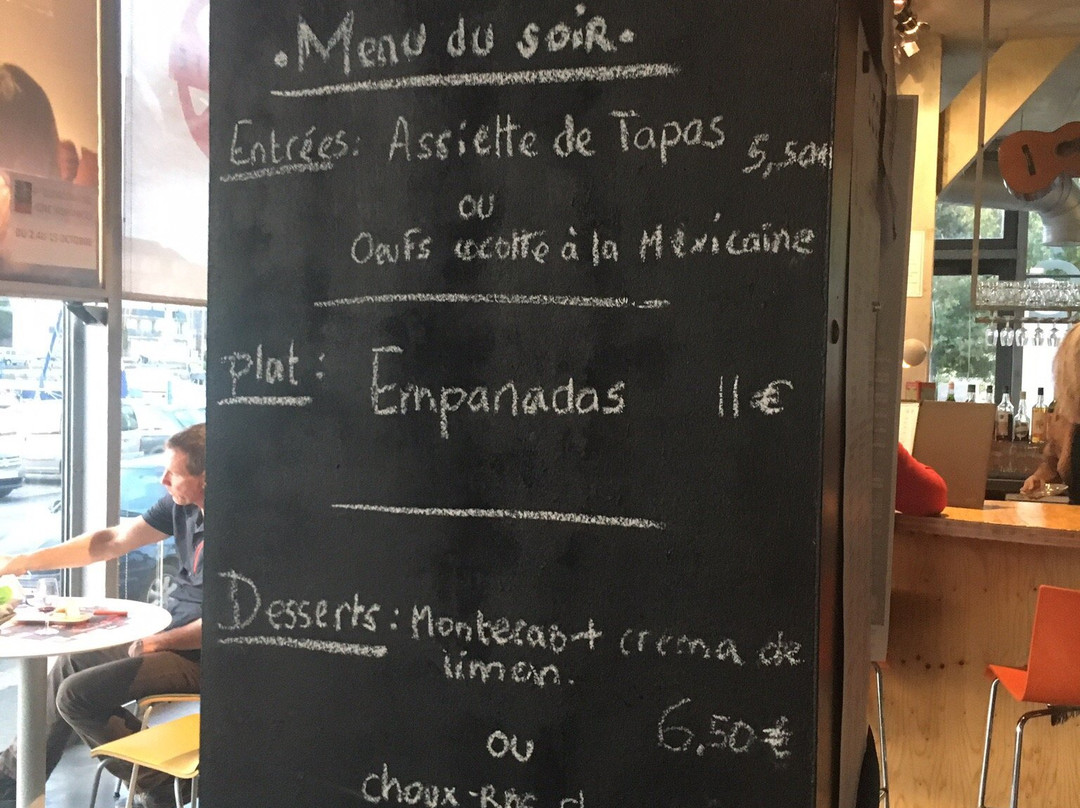 DU 2 AU 15 OCTOBRE
. Menu du soir.
Entrées: Assiette de Tapas 5,50€
ou
Oeufs cocotte à la Mexicaine
plat: Empanadas 11€
Desserts: Montecao + crema de
limon.
6,50€
ou
choux-